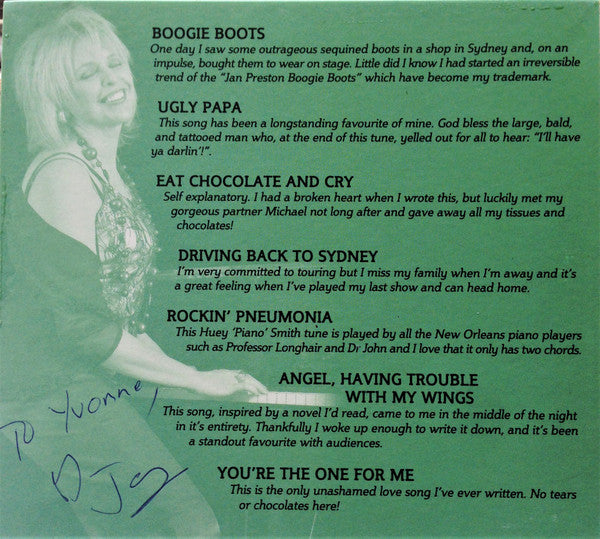 BOOGIE BOOTS
One day I saw some outrageous sequined boots in a shop in Sydney and, on an
impulse, bought them to wear on stage. Little did I know I had started an irreversible
trend of the "Jan Preston Boogie Boots" which have become my trademark.
UGLY PAPA
This song has been a longstanding favourite of mine. God bless the large, bald,
and tattooed man who, at the end of this tune, yelled out for all to hear: "I'll have
ya darlin'!".
EAT CHOCOLATE AND CRY
Self explanatory. I had a broken heart when I wrote this, but luckily met my
gorgeous partner Michael not long after and gave away all my tissues and
chocolates!
DRIVING BACK TO SYDNEY
I'm very committed to touring but I miss my family when I'm away and it's
a great feeling when I've played my last show and can head home.
ROCKIN' PNEUMONIA
This Huey 'Piano' Smith tune is played by all the New Orleans piano players
such as Professor Longhair and Dr John and I love that it only has two chords.
ANGEL, HAVING TROUBLE
WITH MY WINGS
This song, inspired by a novel I'd read, came to me in the middle of the night
in it's entirety. Thankfully I woke up enough to write it down, and it's been
a standout favourite with audiences.
YOU'RE THE ONE FOR ME
This is the only unashamed love song I've ever written. No tears
or chocolates here!
To Yvonne,